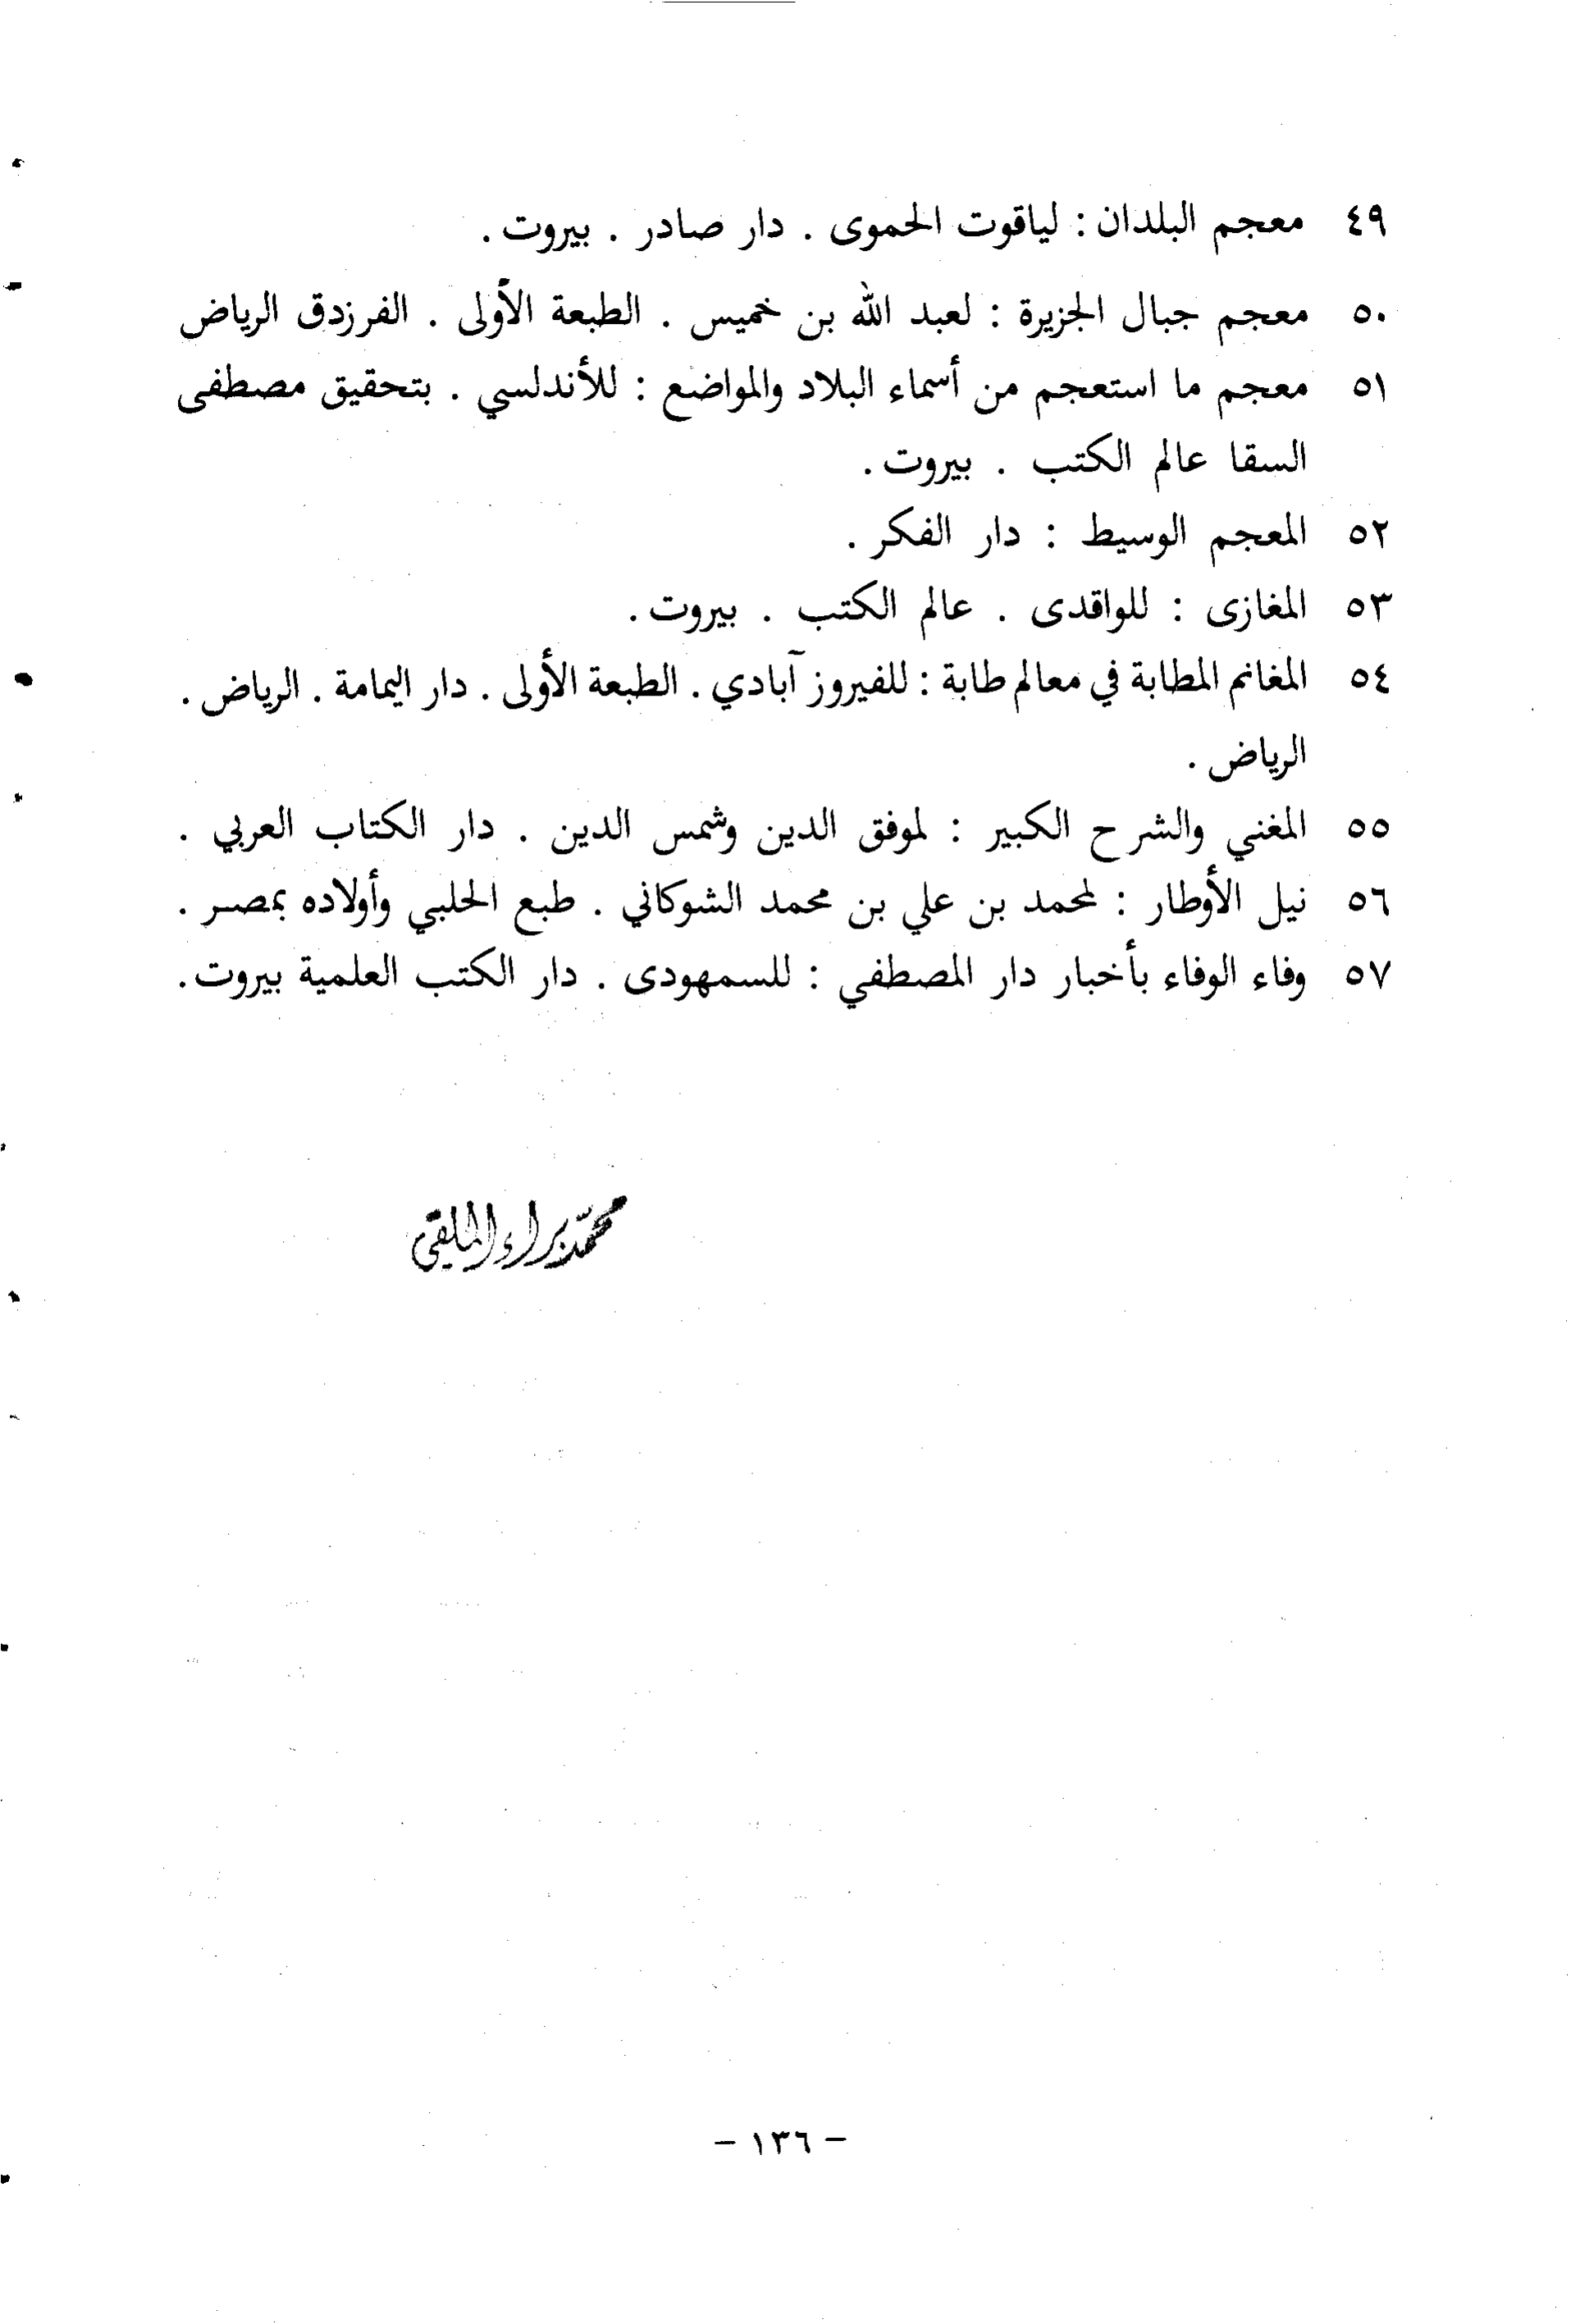 ٤٩ معجم البلدان : لياقوت الحموى . دار صادر . بيروت .
٥٠ معجم جبال الجزيرة : لعبد الله بن خميس . الطبعة الأولى . الفرزدق الرياض
٥١ معجم ما استعجم من أسماء البلاد والمواضع : للأندلسي . بتحقيق مصطفى
السقا عالم الكتب . بيروت .
٥٢ المعجم الوسيط : دار الفكر .
٥٣ المغازى : للواقدى . عالم الكتب . بيروت .
٥٤ المغانم المطابة في معالم طابة : للفيروز آبادي . الطبعة الأولى . دار اليمامة . الرياض .
الرياض .
٥٥ المغني والشرح الكبير : لموفق الدين وشمس الدين . دار الكتاب العربي .
٥٦ نيل الأوطار : لمحمد بن علي بن محمد الشوكاني . طبع الحلبي وأولاده بمصر .
٥٧ وفاء الوفاء بأخبار دار المصطفي : للسمهودى . دار الكتب العلمية بيروت .
محمّد براء الملقي
– ١٣٦ –